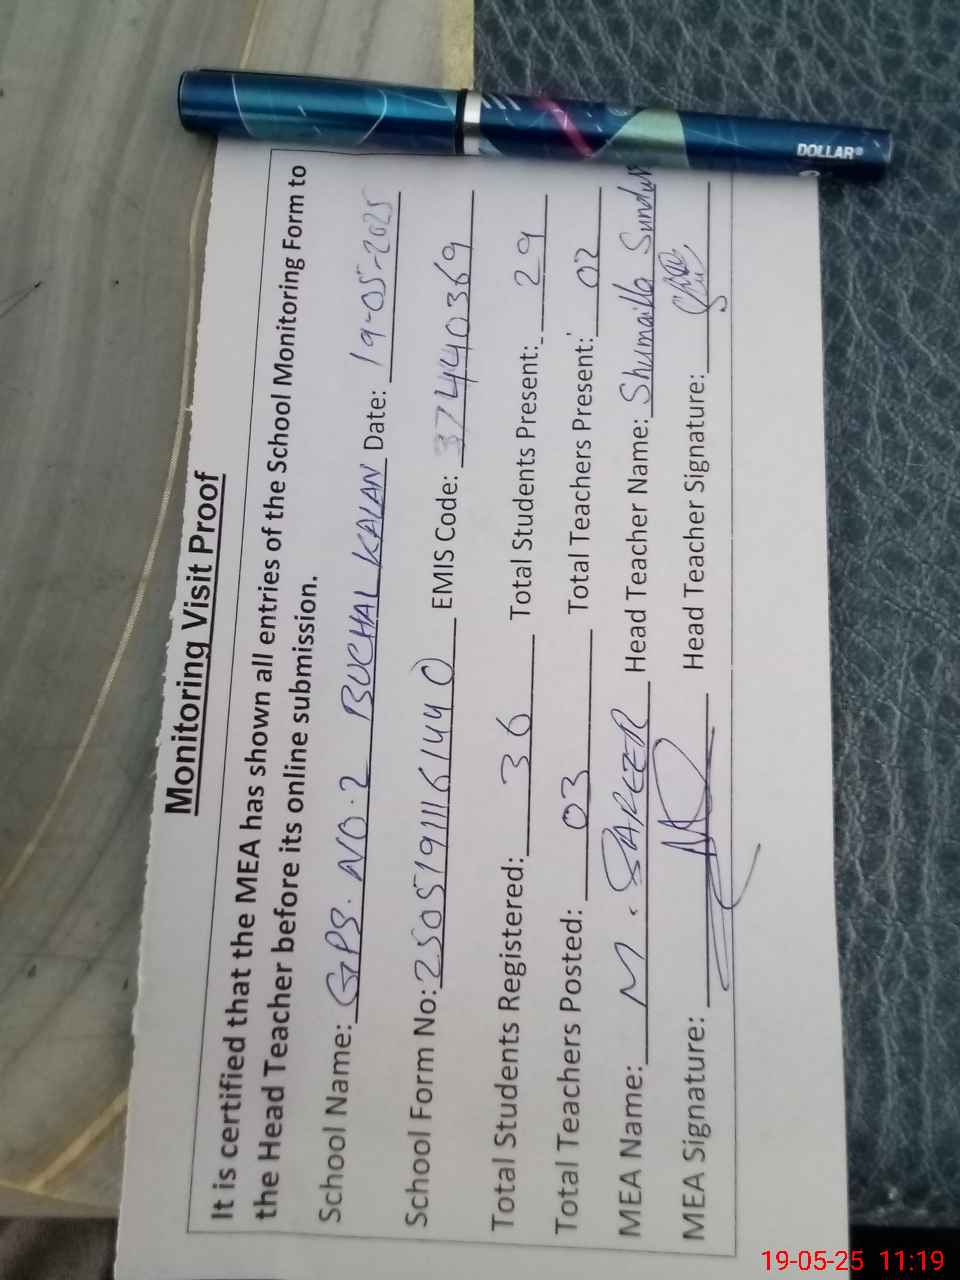 Monitoring Visit Proof
It is certified that the MEA has shown all entries of the School Monitoring Form to
the Head Teacher before its online submission.
School Name: GPS. NO. 2 BUCHAL KALAN Date: 19-05-2025
School Form No: 2505191116144 0 EMIS Code: 37440369
Total Students Registered: 36 Total Students Present: 29
Total Teachers Posted: 03 Total Teachers Present: 02
MEA Name: M. Head Teacher Name: Shumaila
MEA Signature: Head Teacher Signature:
DOLLAR®
19-05-25 11:19